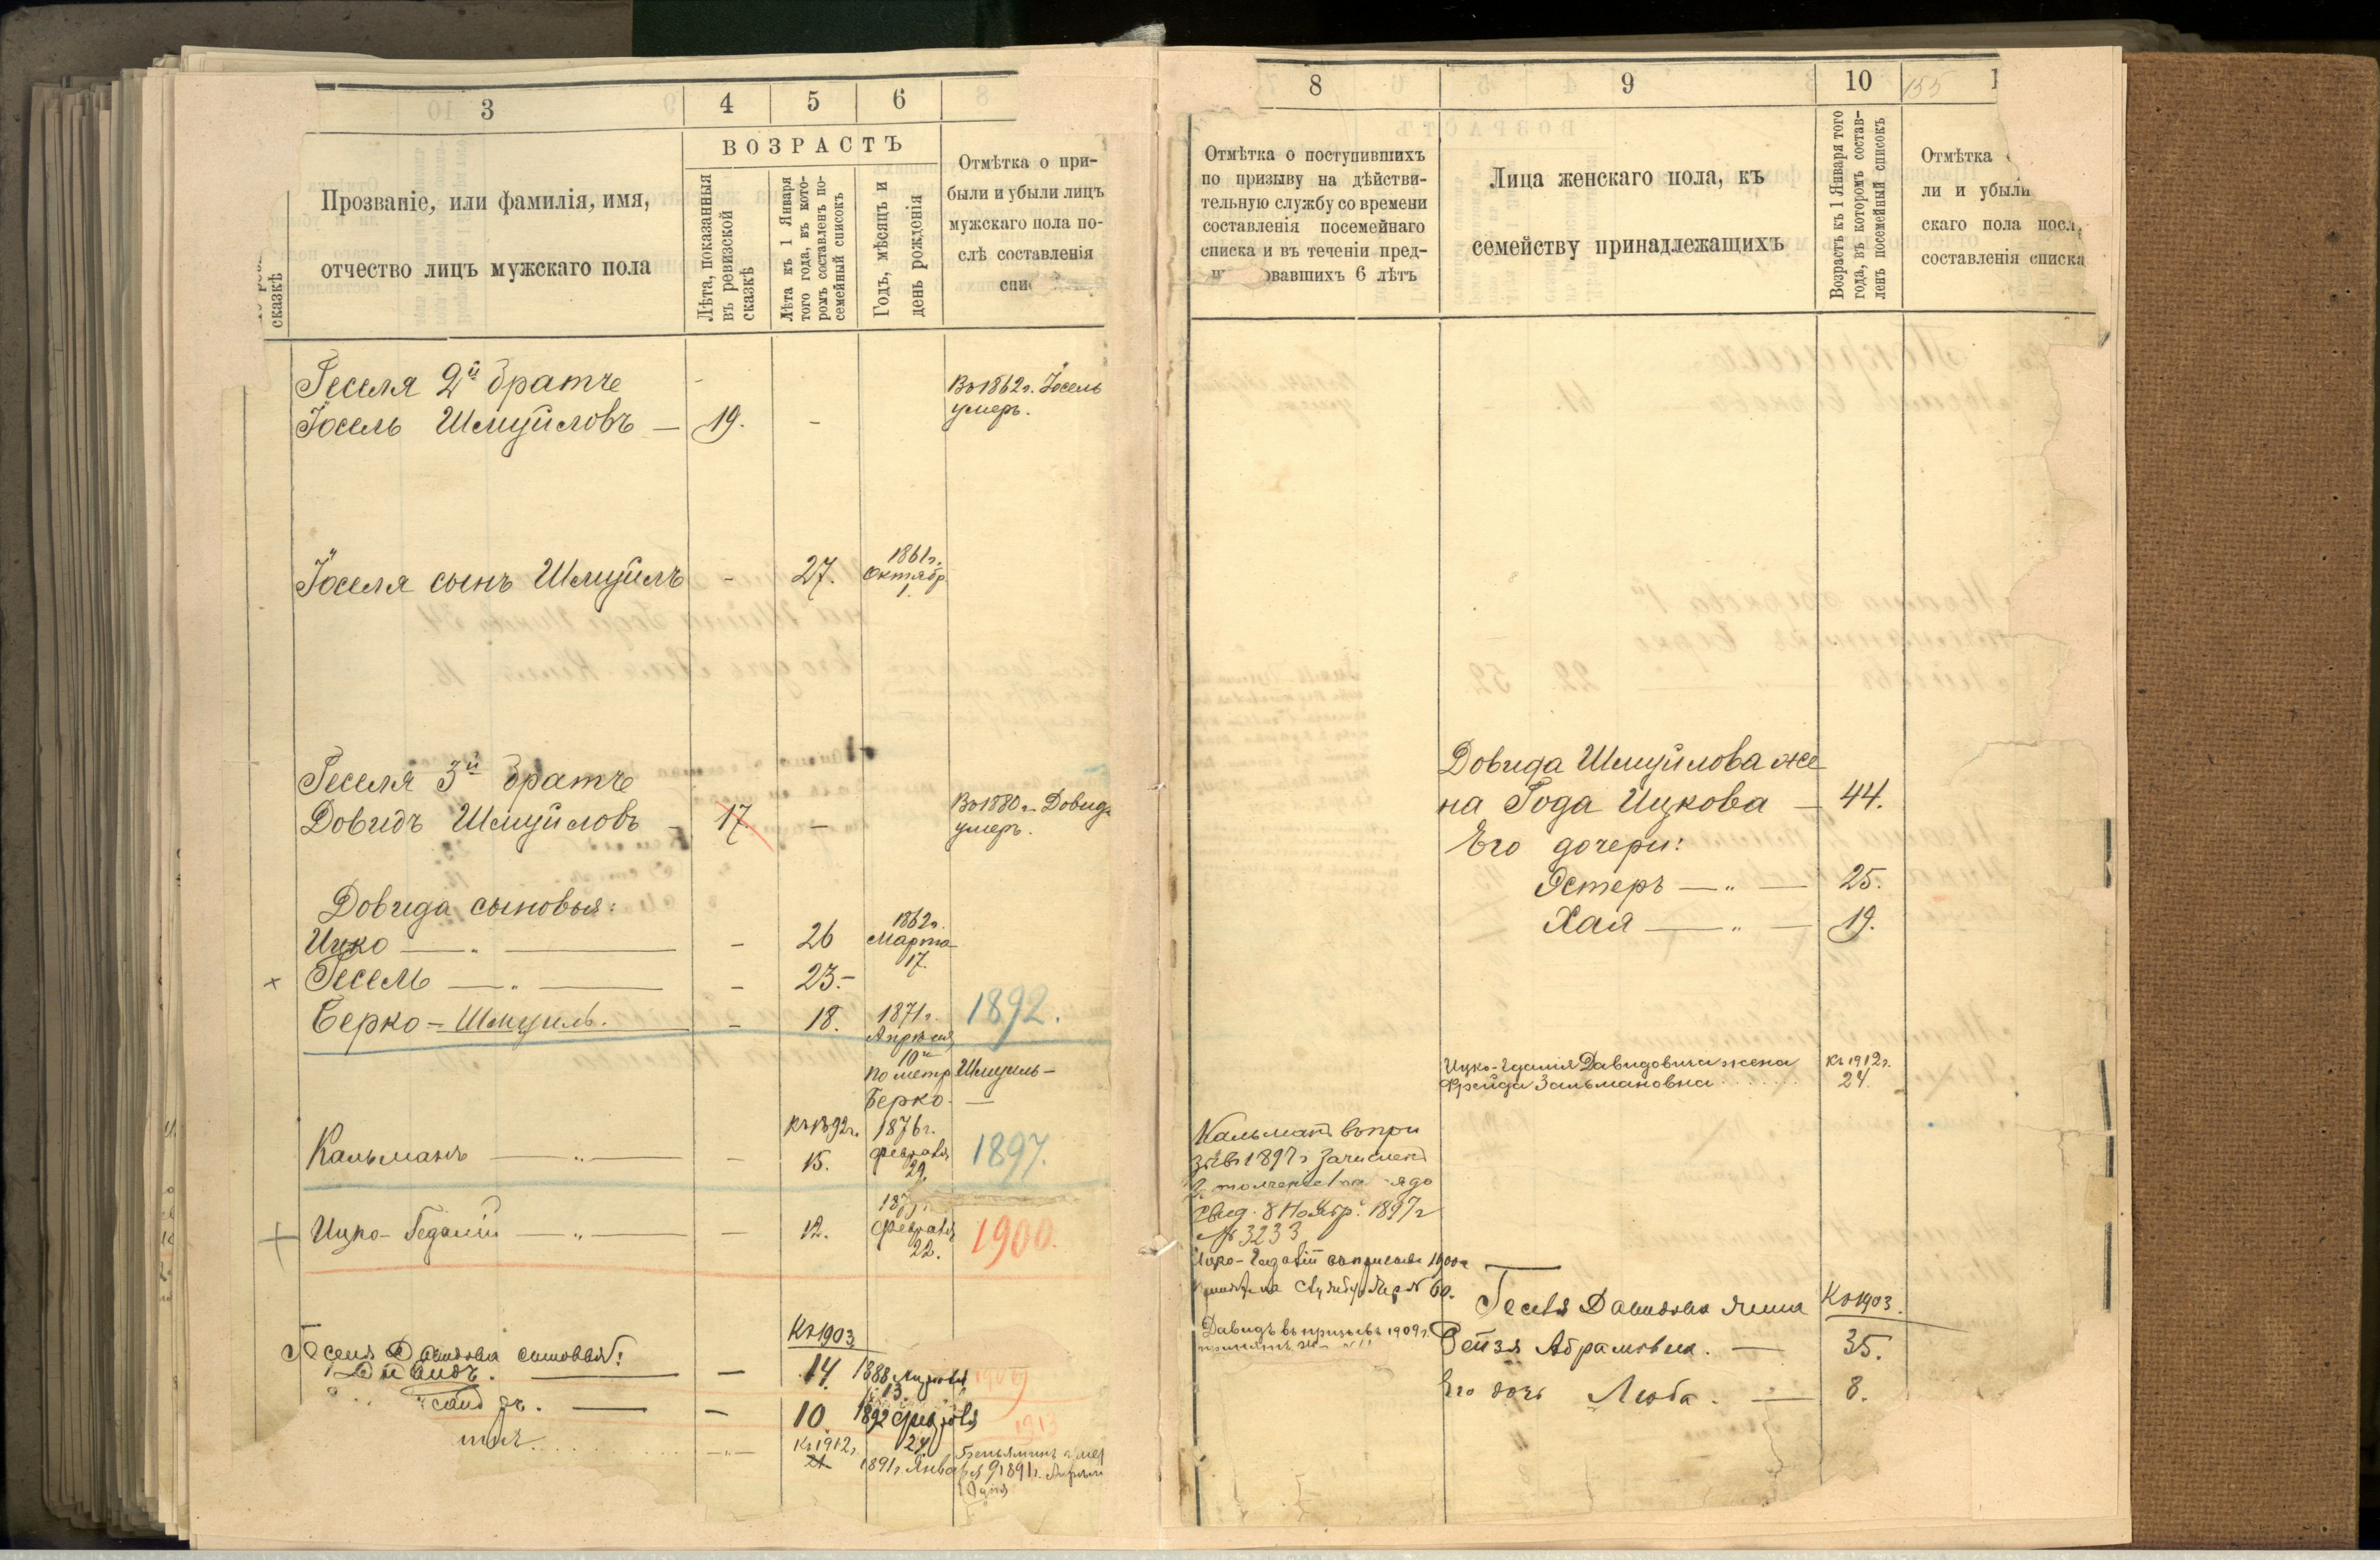 3
4
5
6
ВОЗРАСТЪ
сказкѣ
Прозваніе, или фамилія, имя,
отчество лицъ мужскаго пола
Лѣта, показанныя
въ ревизской
сказкѣ
Лѣта къ 1 Января
того года, въ кото-
ромъ составленъ по-
семейный списокъ
Годъ, мѣсяцъ и
день рожденія
Отмѣтка о при-
были и убыли лицъ
мужскаго пола по-
слѣ составленія
Геселя 2й братъ
Іосель Шмуйловъ — 19. -
Въ 1862г. Іосель
умеръ.
Іоселя сынъ Шмуйлъ - 27.
1861г.
Октябр
1.
Геселя 3й братъ
Довидъ Шмуйловъ - 17. —
Въ 1880г. Довидъ
умеръ.
Довида сыновья:
Ицко — „ — - 26
1862г.
Марта
17.
× Гесель — „ — - 23.-
Берко-Шмуиль. - 18.
1871г.
Апрѣля
10го
1892.
по метр Шмуиль-
Берко. —
Къ 1892г.
Кальманъ — „ — - 15.
1876г.
февраля
29.
1897.
+ Ицко-Гедалій — „ — - 12.
февраля
22.
1900.
Къ 1903
Геселя Давидова сыновья:
Давидъ. — - 14. 1888
13.
1909
— - 10. 1892 февраля
24
1913
Къ 1912г.
21
1891г. Января 9 1891г.
Беньяминъ умер
8
9
10
155
Отмѣтка о поступившихъ
по призыву на дѣйстви-
тельную службу со времени
составленія посемейнаго
списка и въ теченіи пред-
овавшихъ 6 лѣтъ
Лица женскаго пола, къ
семейству принадлежащихъ
Возрастъ къ 1 Января того
года, въ которомъ состав-
ленъ посемейный списокъ
Отмѣтка
ли и убыли
скаго пола посл
составленія списка
Довида Шмуйлова же
на Года Ицкова — 44.
Его дочери:
Эстеръ — „ — 25.
Хая — „ — 19.
Ицко-Гдалія Давидовича жена
Фрейда Зальмановна
Къ 1912г.
24.
Кальманъ въ при
зывъ 1897г зачисленъ
свид. 8 Ноябр. 1897г
№ 3233
Ицко-Гедалій въ призывъ 1900г
принятъ на службу № 60.
Давидъ въ призывъ 1909г.
принятъ
Геселя Давидова жена
Рейзя Абрамовна. — 35.
Къ 1903.
Его дочь Люба. — 8.